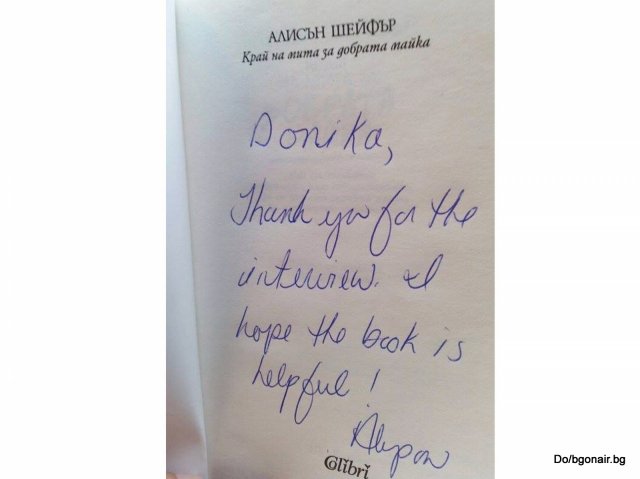 АЛИСЪН ШЕЙФЪР
Край на мита за добрата майка
Donika,
Thank you for the
interview. I
hope the book is
helpful!
Alyson
Colibri
Do/bgonair.bg